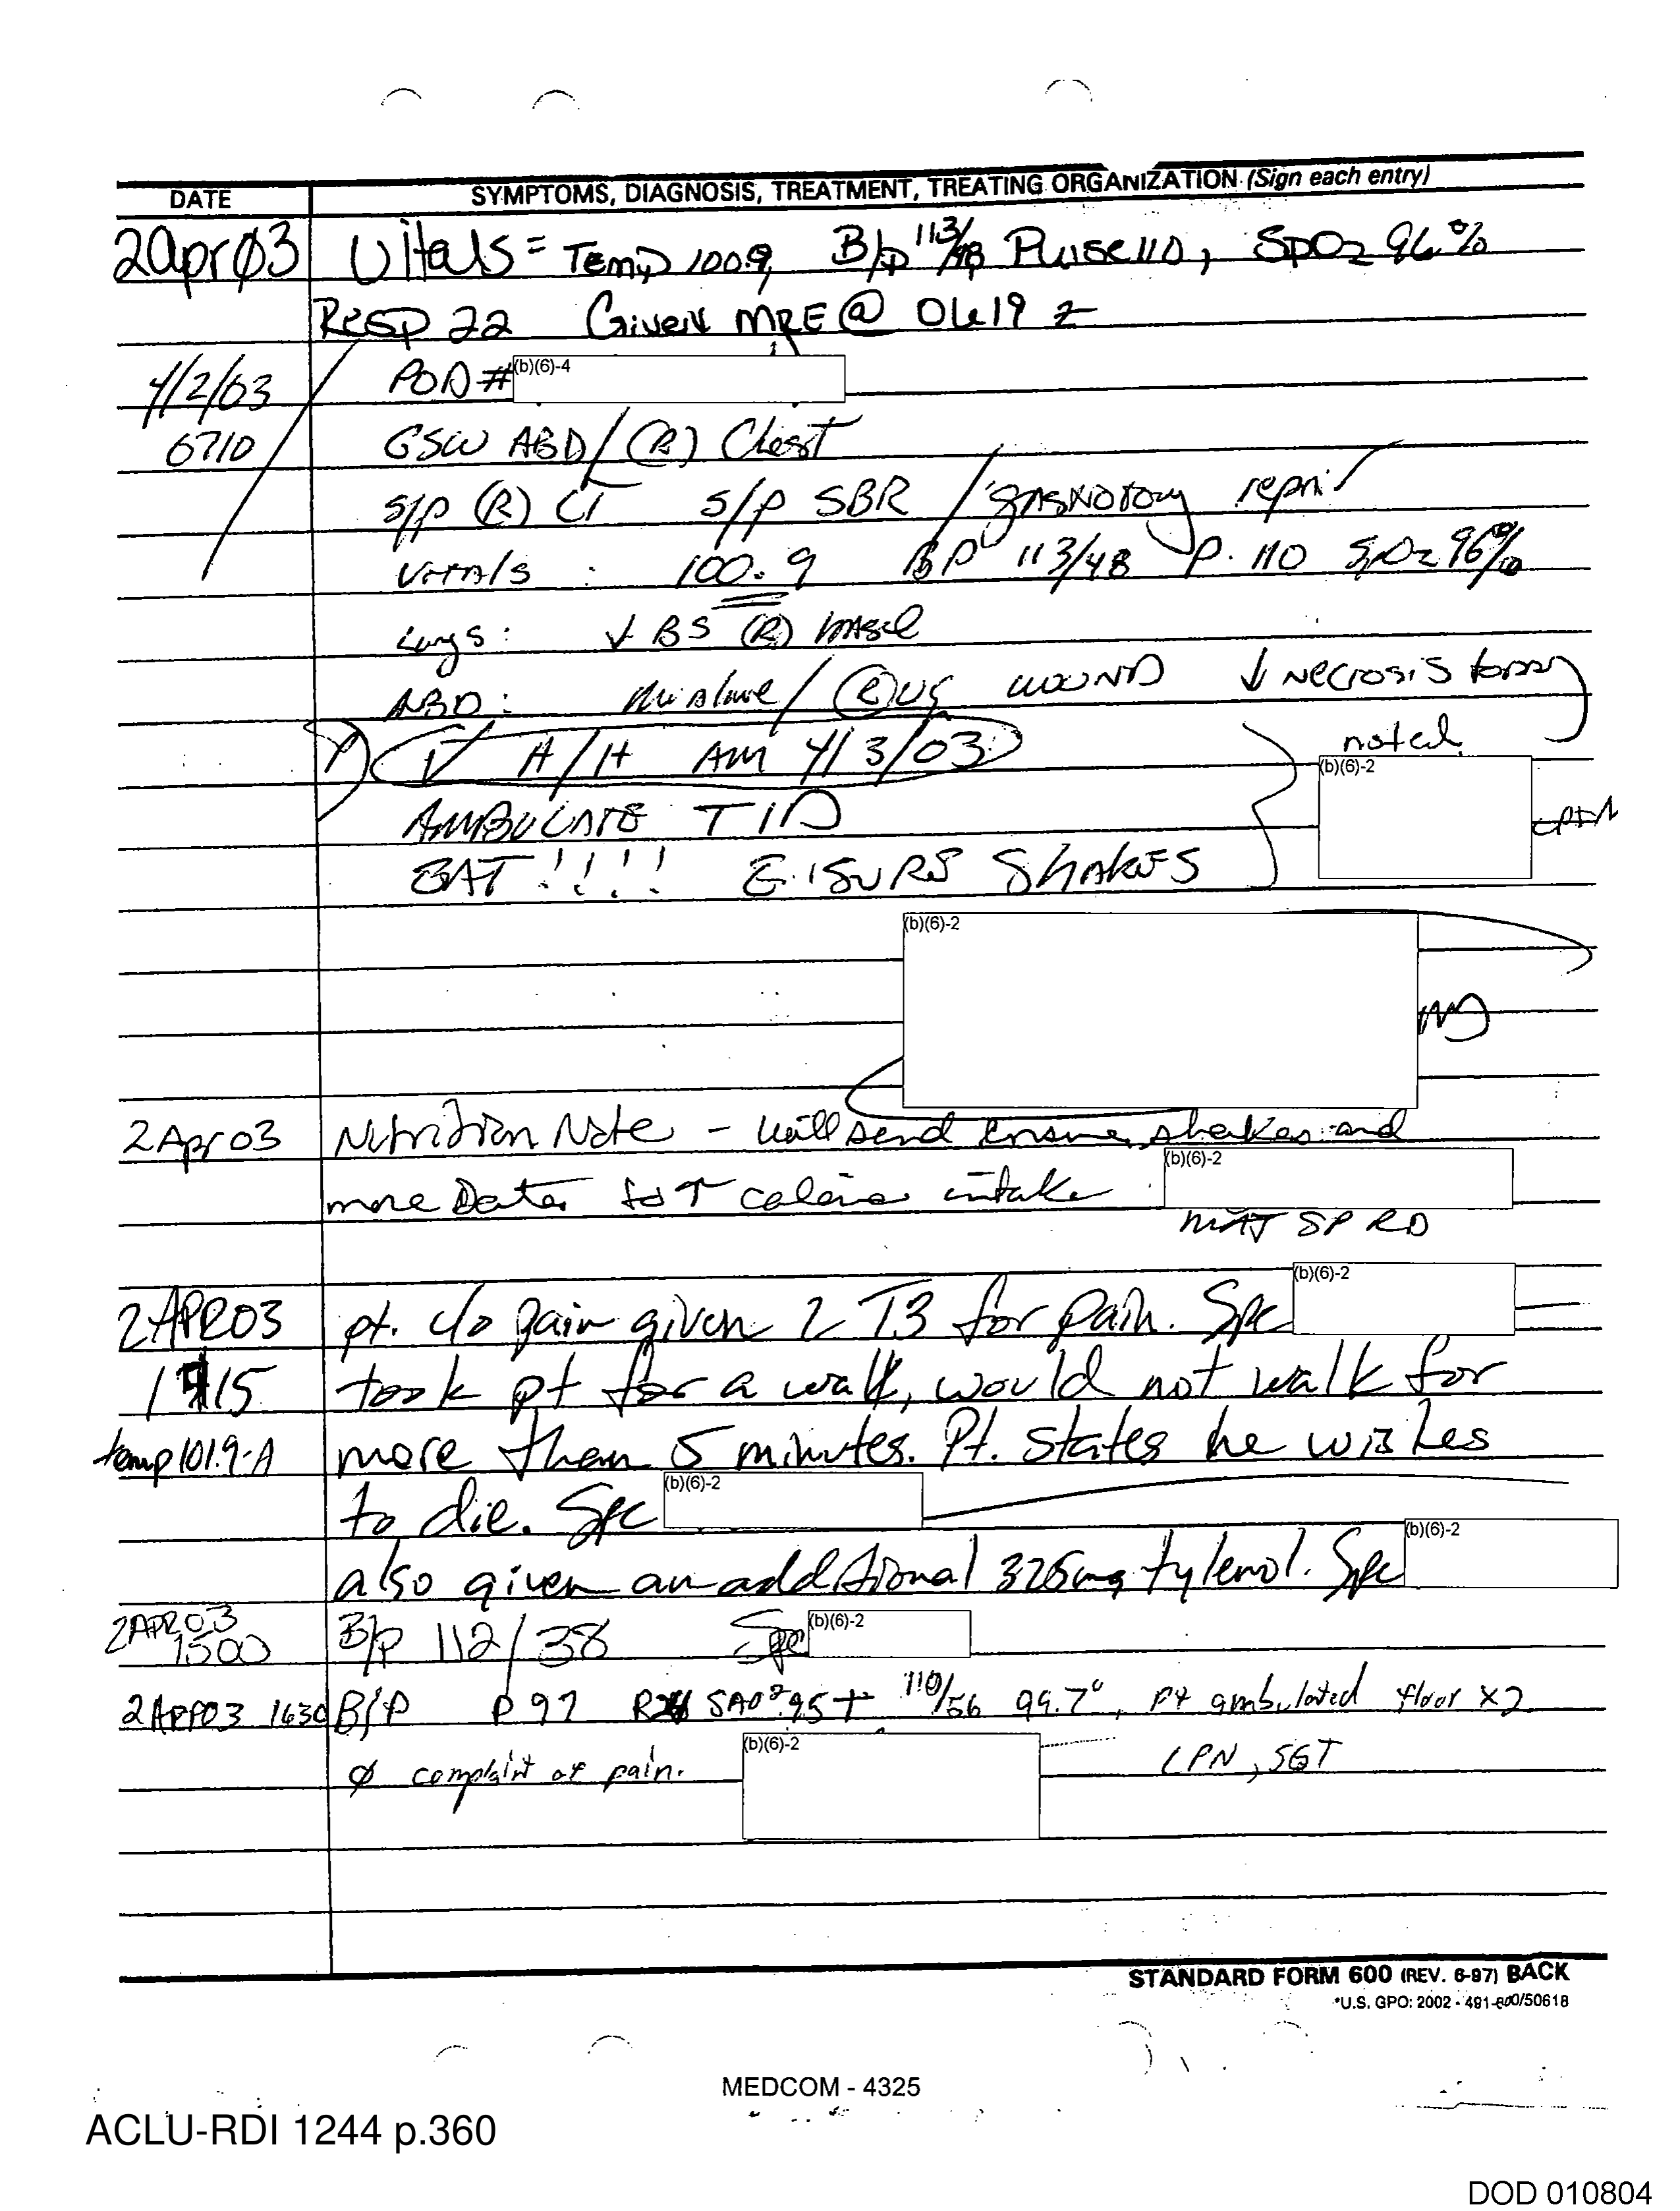 DATE SYMPTOMS, DIAGNOSIS, TREATMENT, TREATING ORGANIZATION (Sign each entry)
2Apr03 Vitals = Temp 100.9, B/p 113/48 Pulse 110, SpO2 96%
Resp 22 Given MRE @ 0419 z
4/2/03 POD # (b)(6)-4
0710 GSW ABD/(R) Chest
s/p (R) CT s/p SBR /
Vitals : 100.9 BP 113/48 P. 110 SpO2 96%
Lungs: ↓ BS (R) basel
ABD: wound ↓ necrosis
noted
√ H/H AM 4/3/03
(b)(6)-2
AMBULATE TID
EAT!!!! SHAKES
(b)(6)-2
MD
2 Apr 03 Nutrition Note - will send ensure, shakes and
more for ↑ calorie intake (b)(6)-2
MAJ SP RD
2APR03 pt. c/o pain given 2 T3 for pain. Spc (b)(6)-2
took pt for a walk, would not walk for
temp 101.9-A more than 5 minutes. Pt. states he wishes
to die. Spc (b)(6)-2
also given an additional 325mg tylenol. Spc (b)(6)-2
2APR03
1500 B/p 112/38 Spc (b)(6)-2
2APR03 1630 B/P P 97 SAO2 95+ 110/56 99.7°, Pt ambulated floor x2
ø complaint of pain. (b)(6)-2 LPN, SGT
STANDARD FORM 600 (REV. 6-97) BACK
*U.S. GPO: 2002 - 491-600/50618
MEDCOM - 4325
ACLU-RDI 1244 p.360
DOD 010804